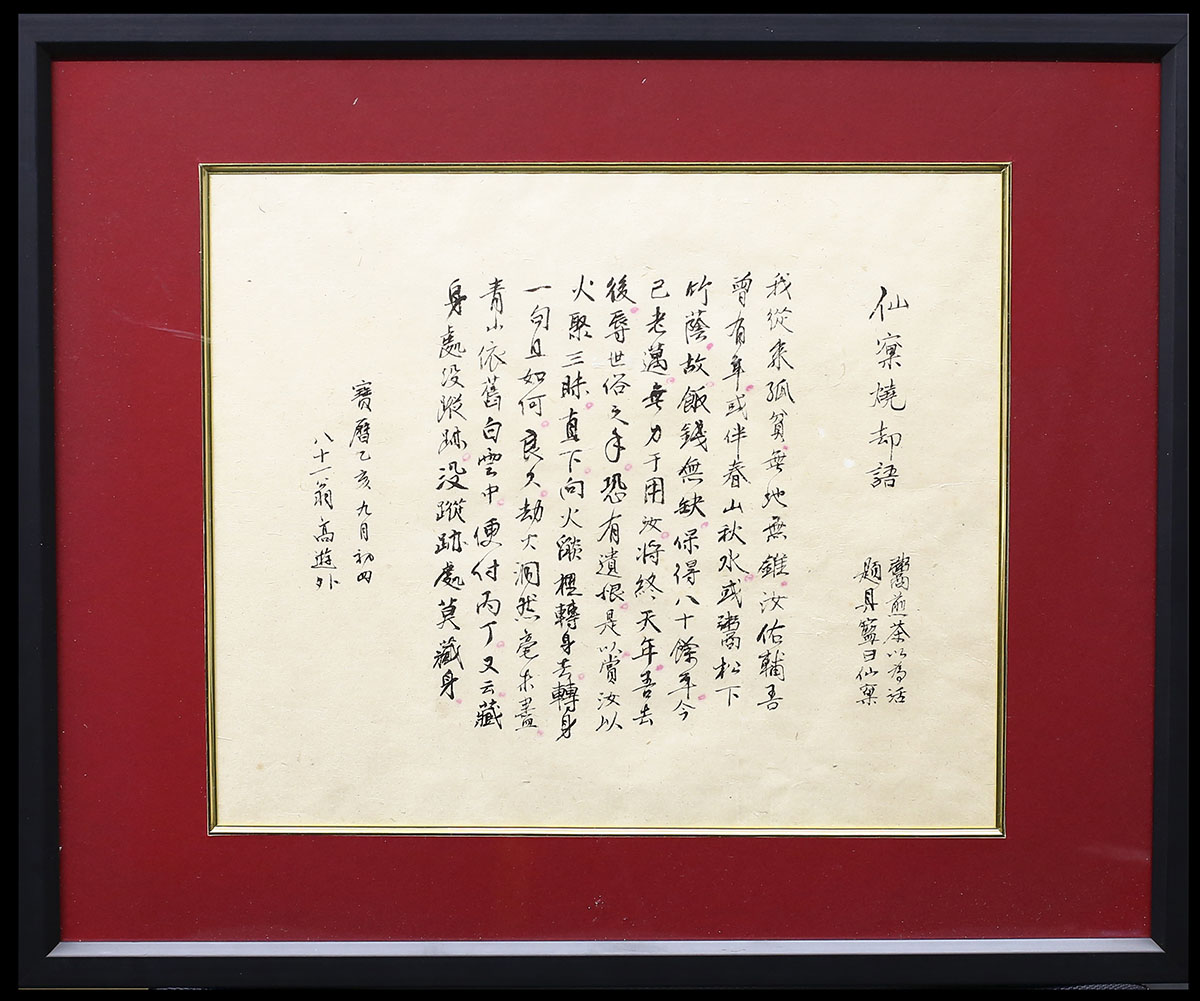 仙窠燒却語
鬻煎茶以爲活
題具籃曰仙窠
我從來孤貧無地無錐汝佑輔吾
曾有年或伴春山秋水或鬻松下
竹蔭故飯錢無缺保得八十餘年今
已老邁無力于用汝將終天年吾去
後辱世俗之手恐有遺恨是以賞汝以
火聚三昧直下向火燄裡轉身去轉身
一句且如何良久劫火洞然毫末盡
青山依舊白雲中便付丙丁又云藏
身處没蹤跡没蹤跡處莫藏身
寶曆乙亥九月初四
八十一翁高遊外